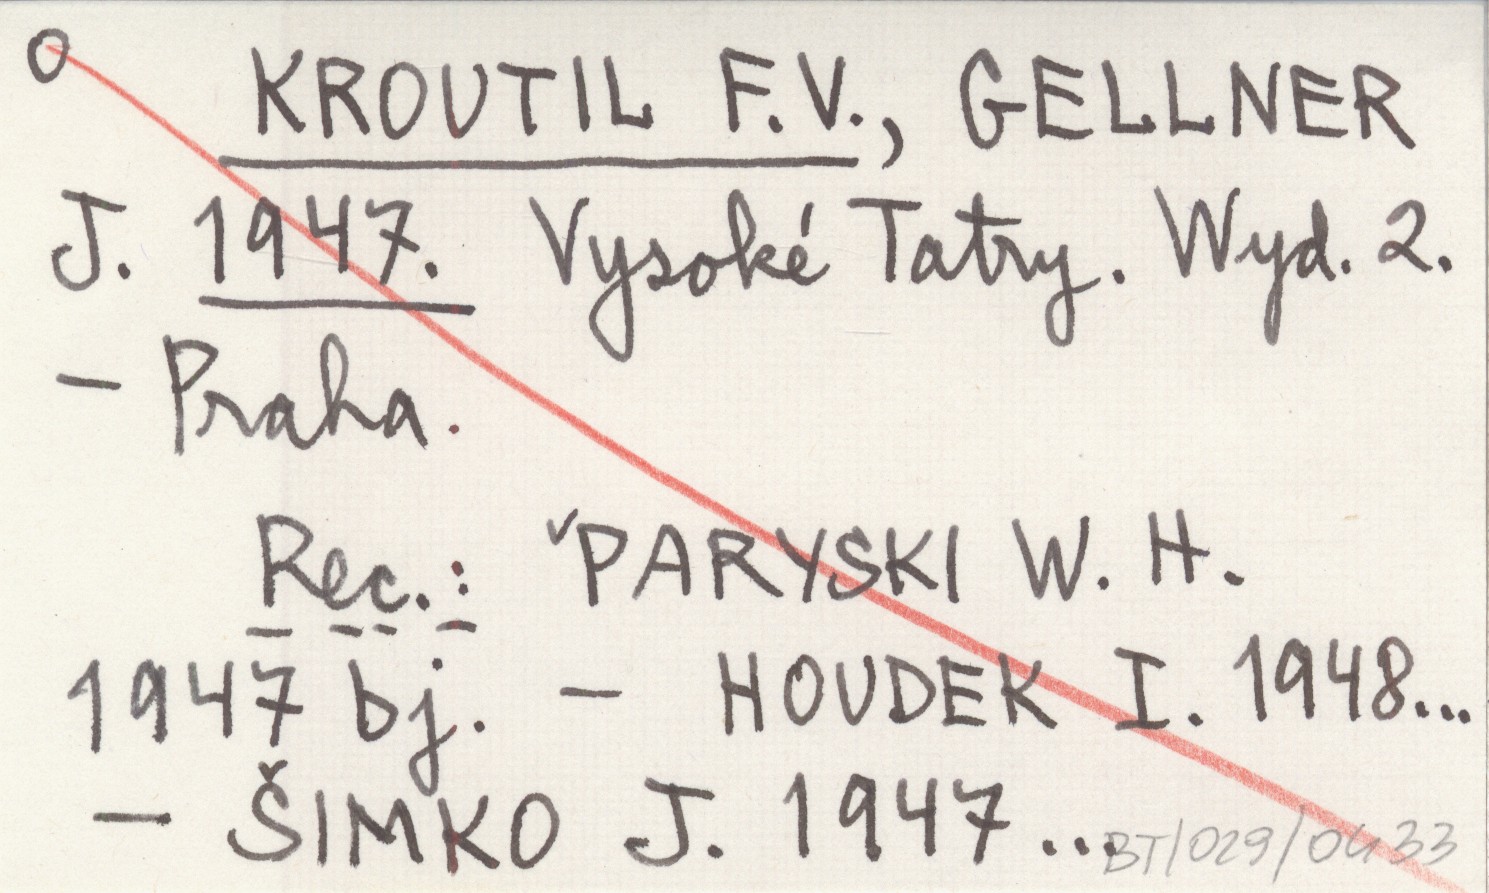 O KROUTIL F.V., GELLNER
J. 1947. Vysoké Tatry. Wyd. 2.
– Praha.
Rec.: ˇPARYSKI W. H.
1947 bj. – HOUDEK I. 1948...
– ŠIMKO J. 1947...
BT/029/0433